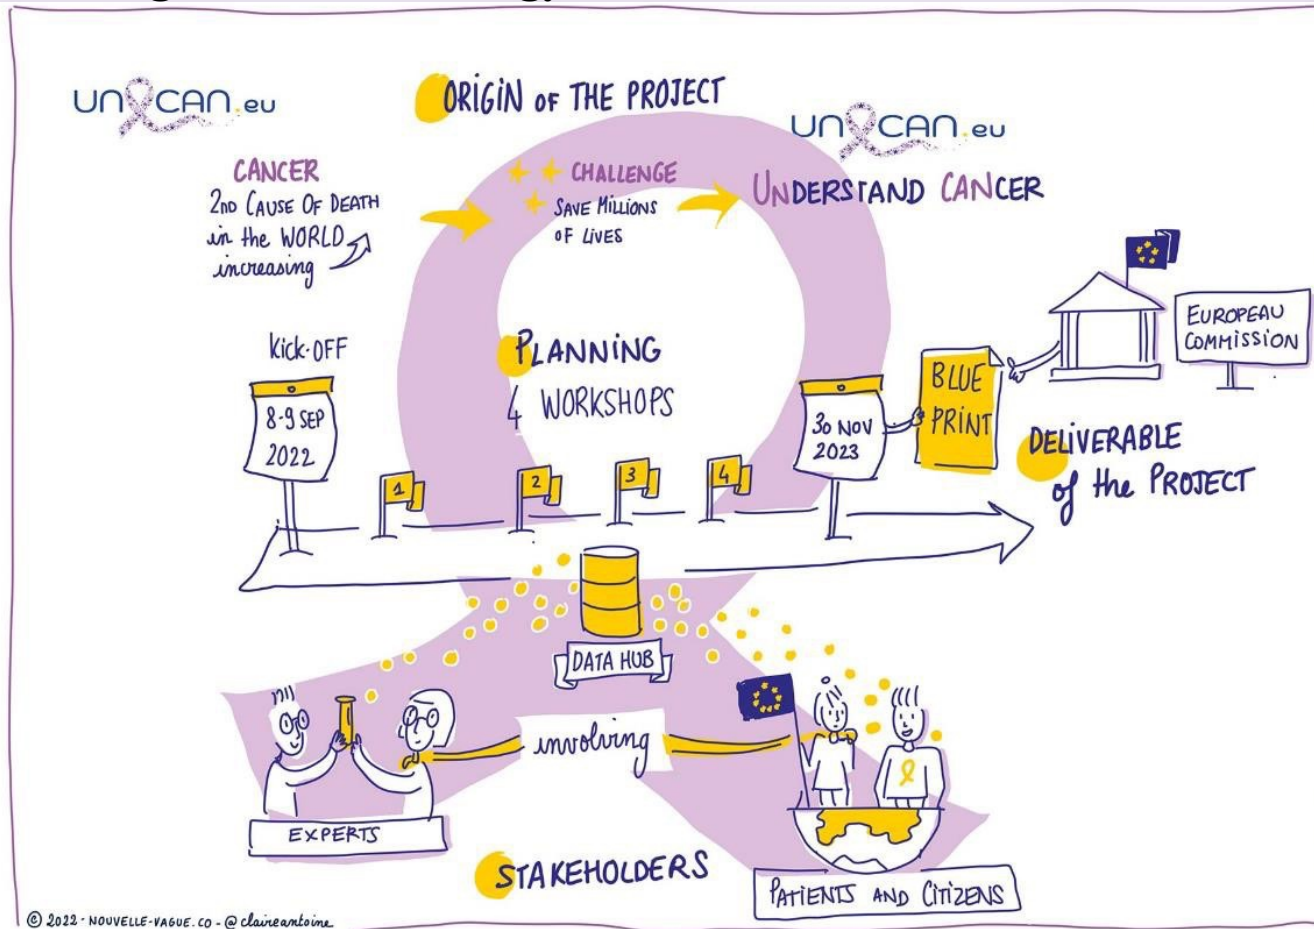 UNCAN.eu
ORIGIN OF THE PROJECT
UNCAN.eu
CANCER
2ND CAUSE OF DEATH
in the WORLD
increasing
CHALLENGE
SAVE MILLIONS
OF LIVES
UNDERSTAND CANCER
Kick-OFF
8-9 SEP
2022
PLANNING
4 WORKSHOPS
1
2
3
4
30 NOV
2023
BLUE
PRINT
EUROPEAU
COMMISSION
DELIVERABLE
of the PROJECT
DATA HUB
involving
EXPERTS
STAKEHOLDERS
PATIENTS AND CITIZENS
© 2022 - NOUVELLE-VAGUE.CO - @claireantoine